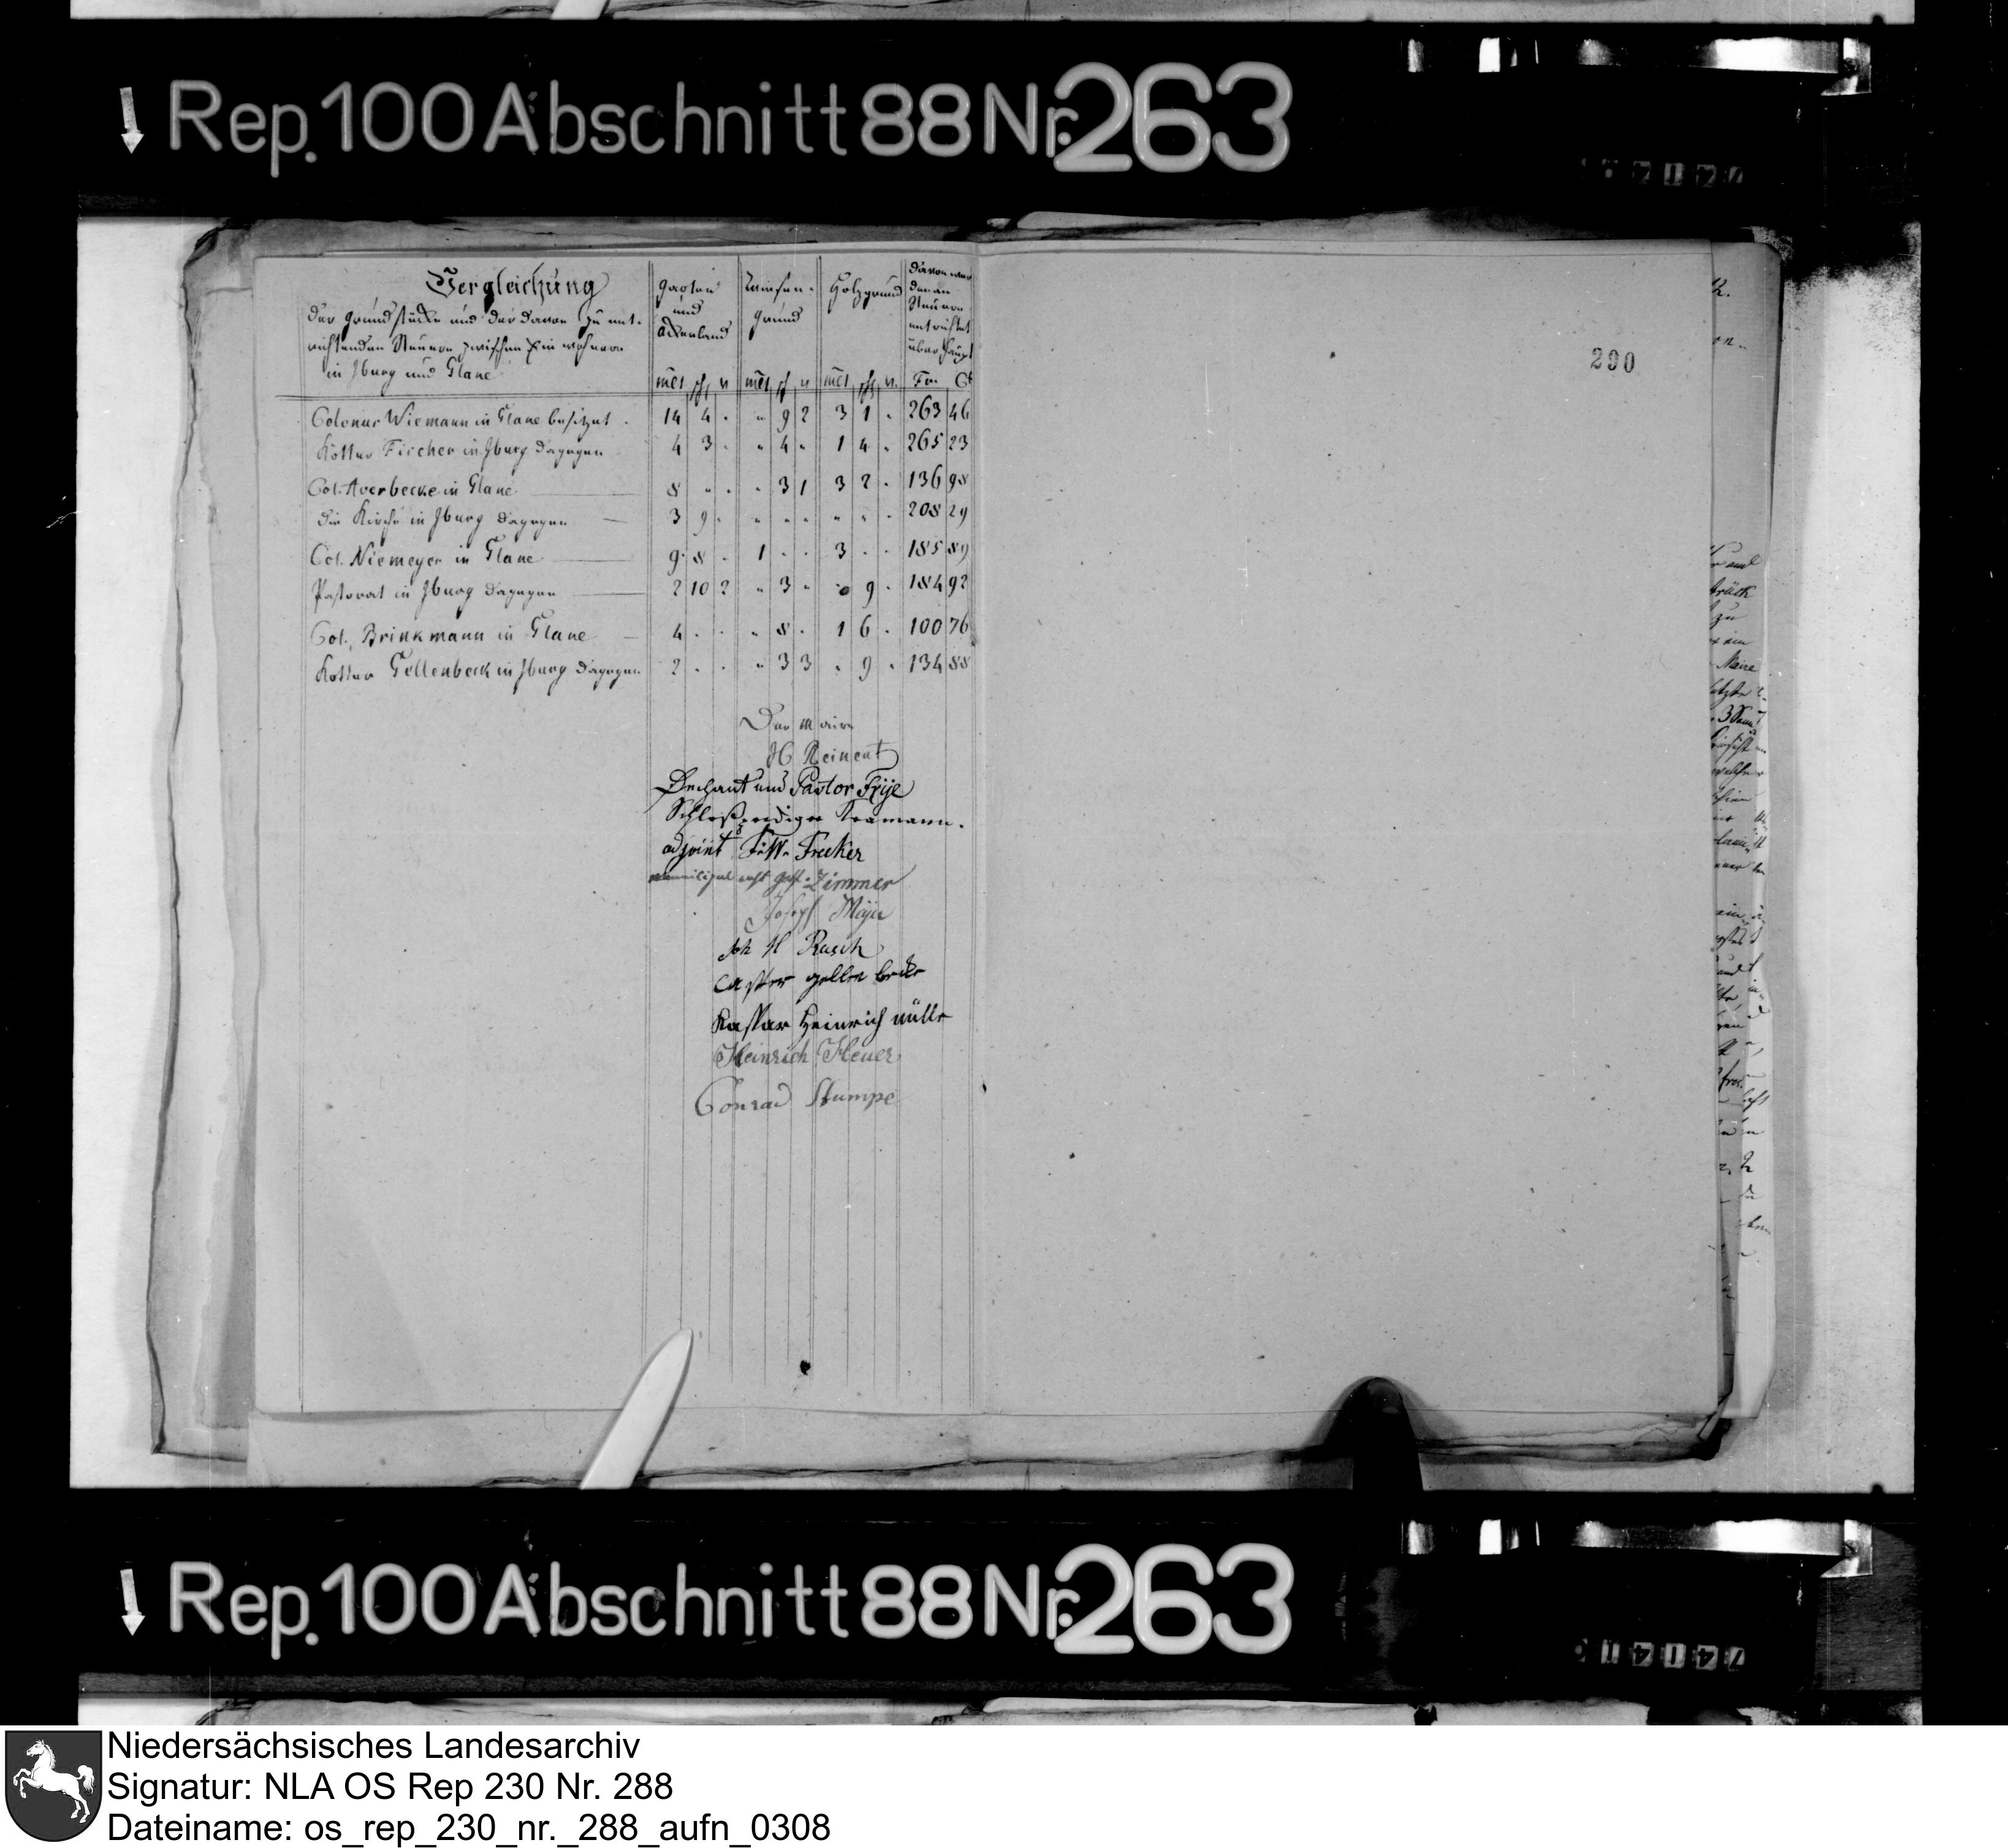 Rep. 100 Abschnitt 88 Nr. 263
Vergleichung
der Grundstücke und der davon zu ent-
richtenden Steuern zwischen Einwohnern
in Jburg und Glane
Garten und Ackerland
Wiesen-grund
Holzgrund
davon werden an Steuern entrichtet überhaupt
mlt schl v mlt sch v mlt schl v. Fr. Ct
Colonus Wiemann in Glane besitzt 14 4 . " 9 2 3 1 . 263 46
Kötter Fischer in Jburg dagegen 4 3 . " 4 " 1 4 . 265 23
Col. Averbecke in Glane 8 " . " 3 1 3 2 . 136 98
die Kirche in Jburg dagegen 3 9 . " . . " " . 208 29
Col. Niemeyer in Glane 9 8 . 1 . . 3 . . 185 89
Pastorat in Jburg dagegen 2 10 2 " 3 " 0 9 . 184 92
Col. Brinkmann in Glane 4 . . " 8 . 1 6 . 100 76
Kötter Gellenbeck in Jburg dagegen 2 . . " 3 3 . 9 . 134 88
290
Der Maire
H Reinert
Dechant und Pastor Frije
Schloßprediger Kramann.
adjoint F. W. Frecker
Zimmer
Joseph Meÿer
Joh H Rasch
Casper gellenbecke
Kaspar Heinrich Mülle
Heinrich Heuer
Conrad Stumpe
Rep. 100 Abschnitt 88 Nr. 263
Niedersächsisches Landesarchiv
Signatur: NLA OS Rep 230 Nr. 288
Dateiname: os_rep_230_nr._288_aufn_0308